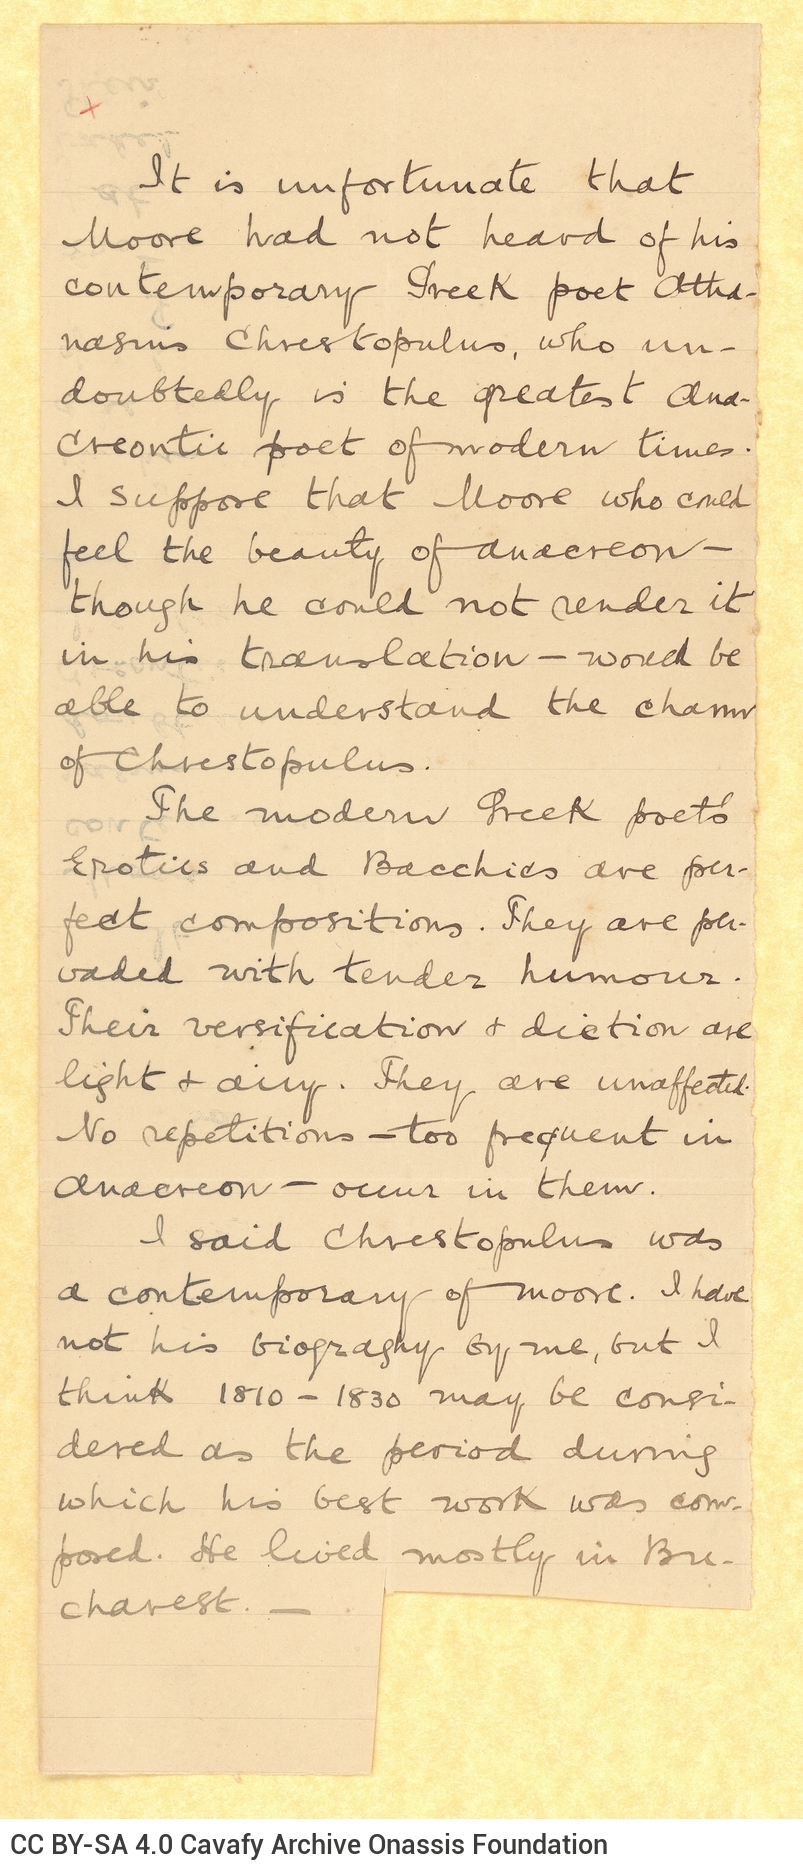 It is unfortunate that
Moore had not heard of his
contemporary Greek poet Atha-
nasius Chrestopulus, who un-
doubtedly is the greatest Ana-
creontic poet of modern times.
I suppose that Moore who could
feel the beauty of Anacreon —
though he could not render it
in his translation — would be
able to understand the charm
of Chrestopulus.
The modern Greek poet's
Erotics and Bacchics are per-
fect compositions. They are per-
vaded with tender humour.
Their versification & diction are
light & airy. They are unaffected.
No repetitions — too frequent in
Anacreon — occur in them.
I said Chrestopulus was
a contemporary of Moore. I have
not his biography by me, but I
think 1810 – 1830 may be consi-
dered as the period during
which his best work was com-
posed. He lived mostly in Bu-
charest. —
CC BY-SA 4.0 Cavafy Archive Onassis Foundation